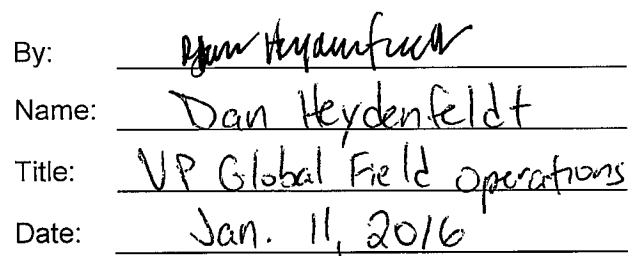 By: Dan Heydenfeldt
Name: Dan Heydenfeldt
Title: VP Global Field Operations
Date: Jan. 11, 2016